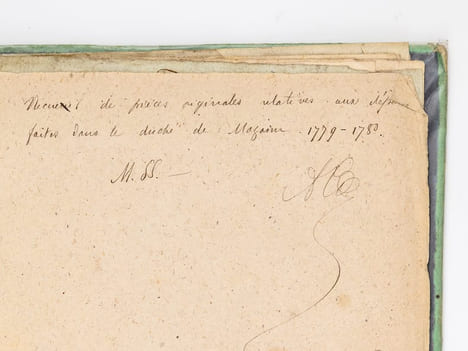 Recueil de pièces originales relatives aux dépenses
faites dans le duché de Mazarin 1779-1780.
M. SS. —